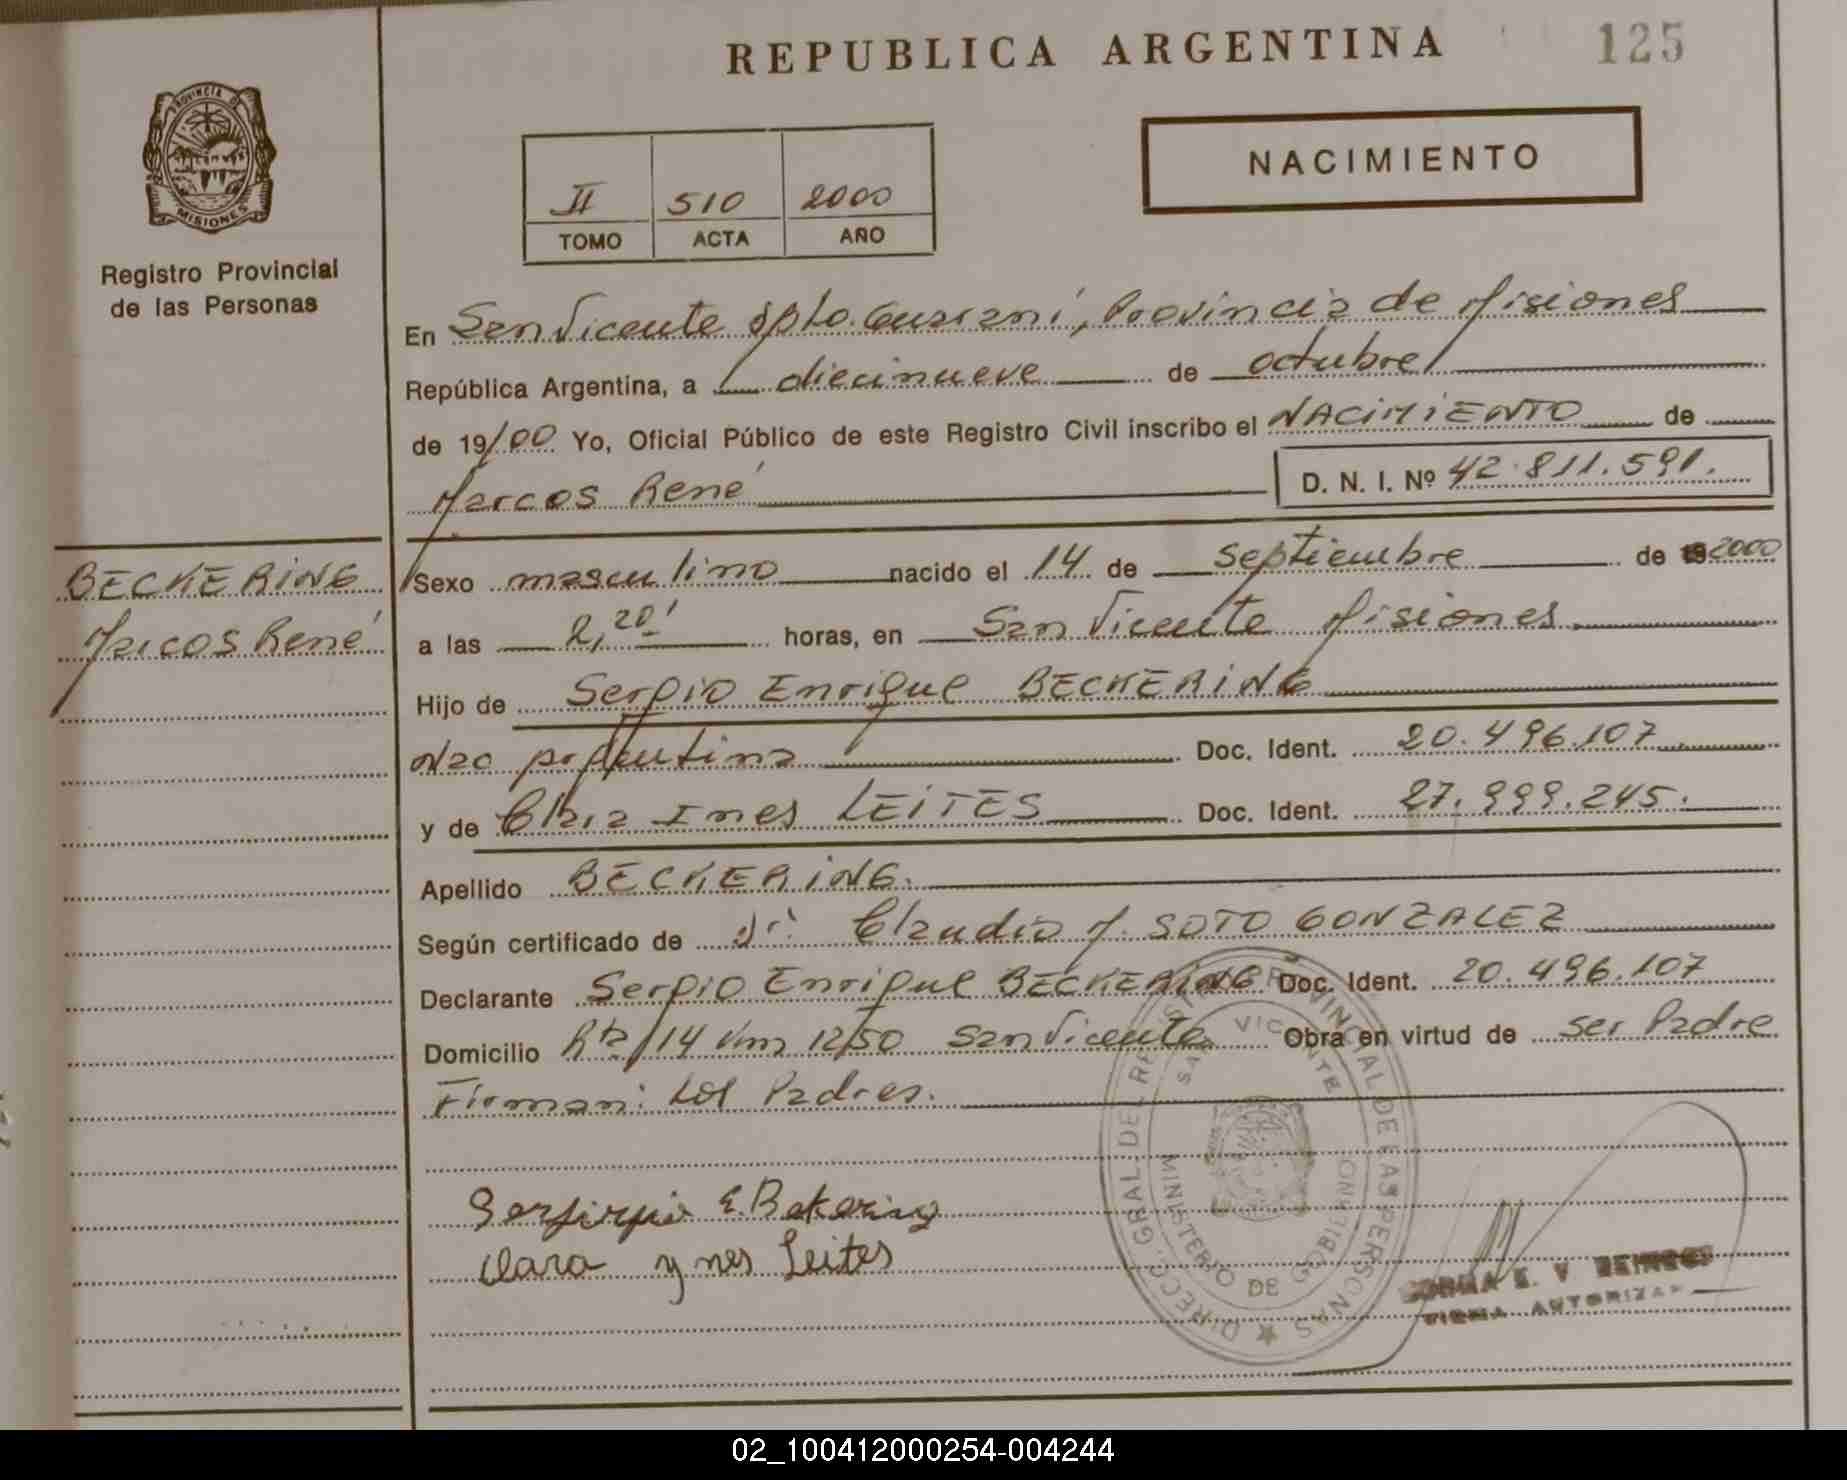 REPUBLICA ARGENTINA
125
PROVINCIA DE
MISIONES
Registro Provincial
de las Personas
II 510 2000
TOMO ACTA AÑO
NACIMIENTO
En San Vicente Dpto. Guaraní, Provincia de Misiones
República Argentina, a diecinueve de octubre
de 19/00 Yo, Oficial Público de este Registro Civil inscribo el NACIMIENTO de
Marcos René D. N. I. Nº 42.811.591.
BECKERING
Marcos René
Sexo masculino nacido el 14 de septiembre de 2000
a las 2,20' horas, en San Vicente Misiones
Hijo de Sergio Enrique BECKERING
Nac argentina Doc. Ident. 20.496.107
y de Clara Ines LEITES Doc. Ident. 27.999.245.
Apellido BECKERING.
Según certificado de Claudio M. SOTO GONZALEZ
Declarante Sergio Enrique BECKERING Doc. Ident. 20.496.107
Domicilio Rta/14 Km 1250 San Vicente Obra en virtud de ser Padre
Firman: Los Padres.
E. Bekering
Clara ynes Leites
DIRECC. GRAL. DEL REGISTRO PROVINCIAL DE LAS PERSONAS
SAN VICENTE
MINISTERIO DE GOBIERNO
E. V.
FIRMA AUTORIZADA
02_100412000254-004244